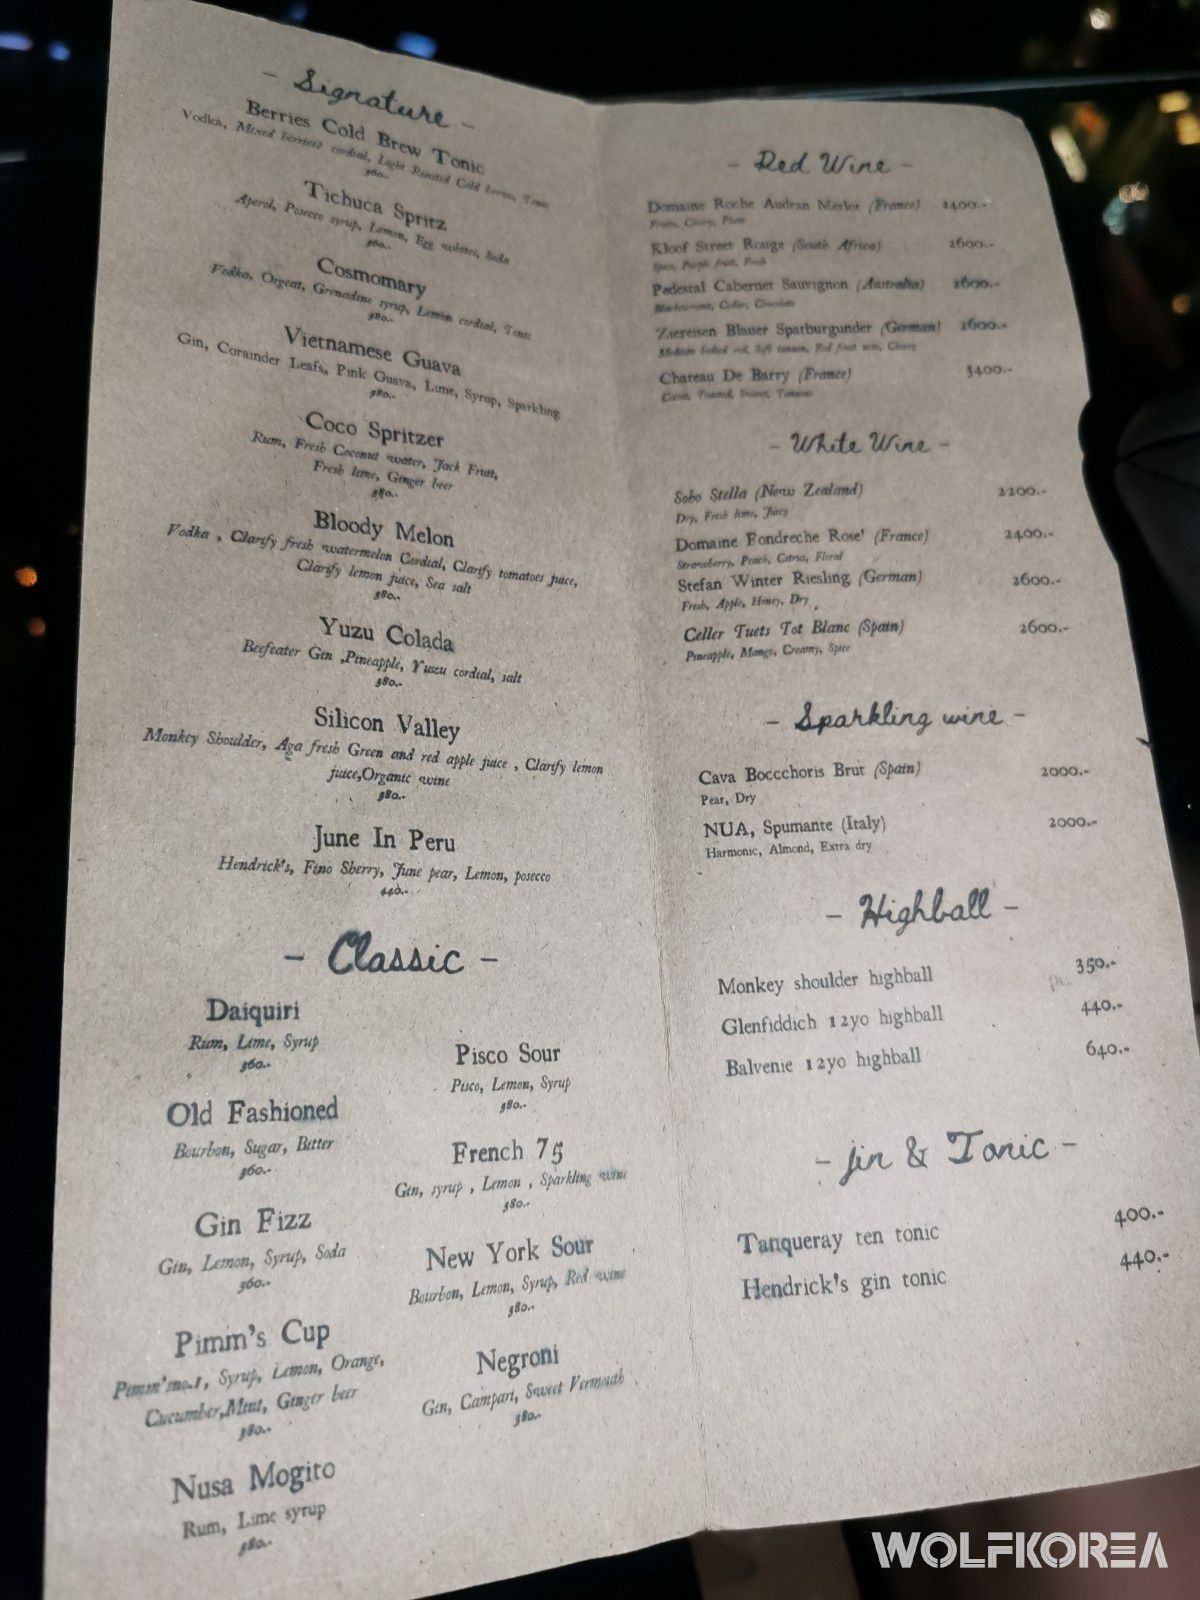 - Signature -
Berries Cold Brew Tonic
Vodka, Mixed berries cordial, Light Roasted Cold brew, Tonic
360.-
Tichuca Spritz
Aperol, Posecco syrup, Lemon, Egg whites, Soda
360.-
Cosmomary
Vodka, Orgeat, Grenadine syrup, Lemon cordial, Tonic
380.-
Vietnamese Guava
Gin, Corainder Leafs, Pink Guava, Lime, Syrup, Sparkling
380.-
Coco Spritzer
Rum, Fresh Coconut water, Jack Fruit,
Fresh lime, Ginger beer
380.-
Bloody Melon
Vodka , Clarify fresh watermelon Cordial, Clarify tomatoes juice,
Clarify lemon juice, Sea salt
380.-
Yuzu Colada
Beefeater Gin ,Pineapple, Yuzu cordial, salt
380.-
Silicon Valley
Monkey Shoulder, Aga fresh Green and red apple juice , Clarify lemon
juice,Organic wine
380.-
June In Peru
Hendrick's, Fino Sherry, June pear, Lemon, posecco
440.-
- Classic -
Daiquiri
Rum, Lime, Syrup
360.-
Old Fashioned
Bourbon, Sugar, Bitter
360.-
Gin Fizz
Gin, Lemon, Syrup, Soda
360.-
Pimm's Cup
Pimm'sno.1, Syrup, Lemon, Orange,
Cucumber,Mint, Ginger beer
380.-
Nusa Mogito
Rum, Lime syrup
380.-
Pisco Sour
Pisco, Lemon, Syrup
380.-
French 75
Gin, syrup , Lemon , Sparkling wine
380.-
New York Sour
Bourbon, Lemon, Syrup, Red wine
380.-
Negroni
Gin, Campari, Sweet Vermouth
380.-
- Red Wine -
Domaine Roche Audran Merlot (France) 2400.-
Fruity, Cherry, Plum
Kloof Street Rouge (South Africa) 2600.-
Spice, Purple fruit, Fresh
Pedestal Cabernet Sauvignon (Australia) 2600.-
Blackcurrant, Cedar, Chocolate
Ziereisen Blauer Sparburgunder (German) 2600.-
Medium bodied red, Soft tannin, Red fruit wine, Cherry
Chateau De Barry (France) 3400.-
Toasted, Sweet, Tannins
- White Wine -
Soho Stella (New Zealand) 2200.-
Dry, Fresh lime, Juicy
Domaine Fondreche Rose' (France) 2400.-
Strawberry, Peach, Citrus, Floral
Stefan Winter Riesling (German) 2600.-
Fresh, Apple, Honey, Dry
Celler Tuets Tot Blanc (Spain) 2600.-
Pineapple, Mango, Creamy, Spice
- Sparkling wine -
Cava Boccchoris Brut (Spain) 2000.-
Pear, Dry
NUA, Spumante (Italy) 2000.-
Harmonic, Almond, Extra dry
- Highball -
Monkey shoulder highball 350.-
Glenfiddich 12yo highball 440.-
Balvenie 12yo highball 640.-
- Jin & Tonic -
Tanqueray ten tonic 400.-
Hendrick's gin tonic 440.-
WOLFKOREA